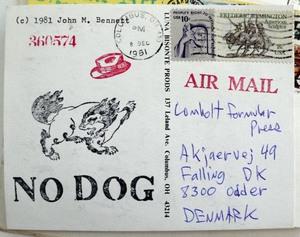 (c) 1981 John M. Bennett
360574
NO DOG
LUNA BISONTE PRODS 137 Leland Ave. Columbus, OH 43214
COLUMBUS, OH
PM
8 DEC
1981
USA
10c
FREDERIC REMINGTON
AIR MAIL
Lombolt formular
Press
Akjaervej 49
Falling DK
8300 Odder
DENMARK